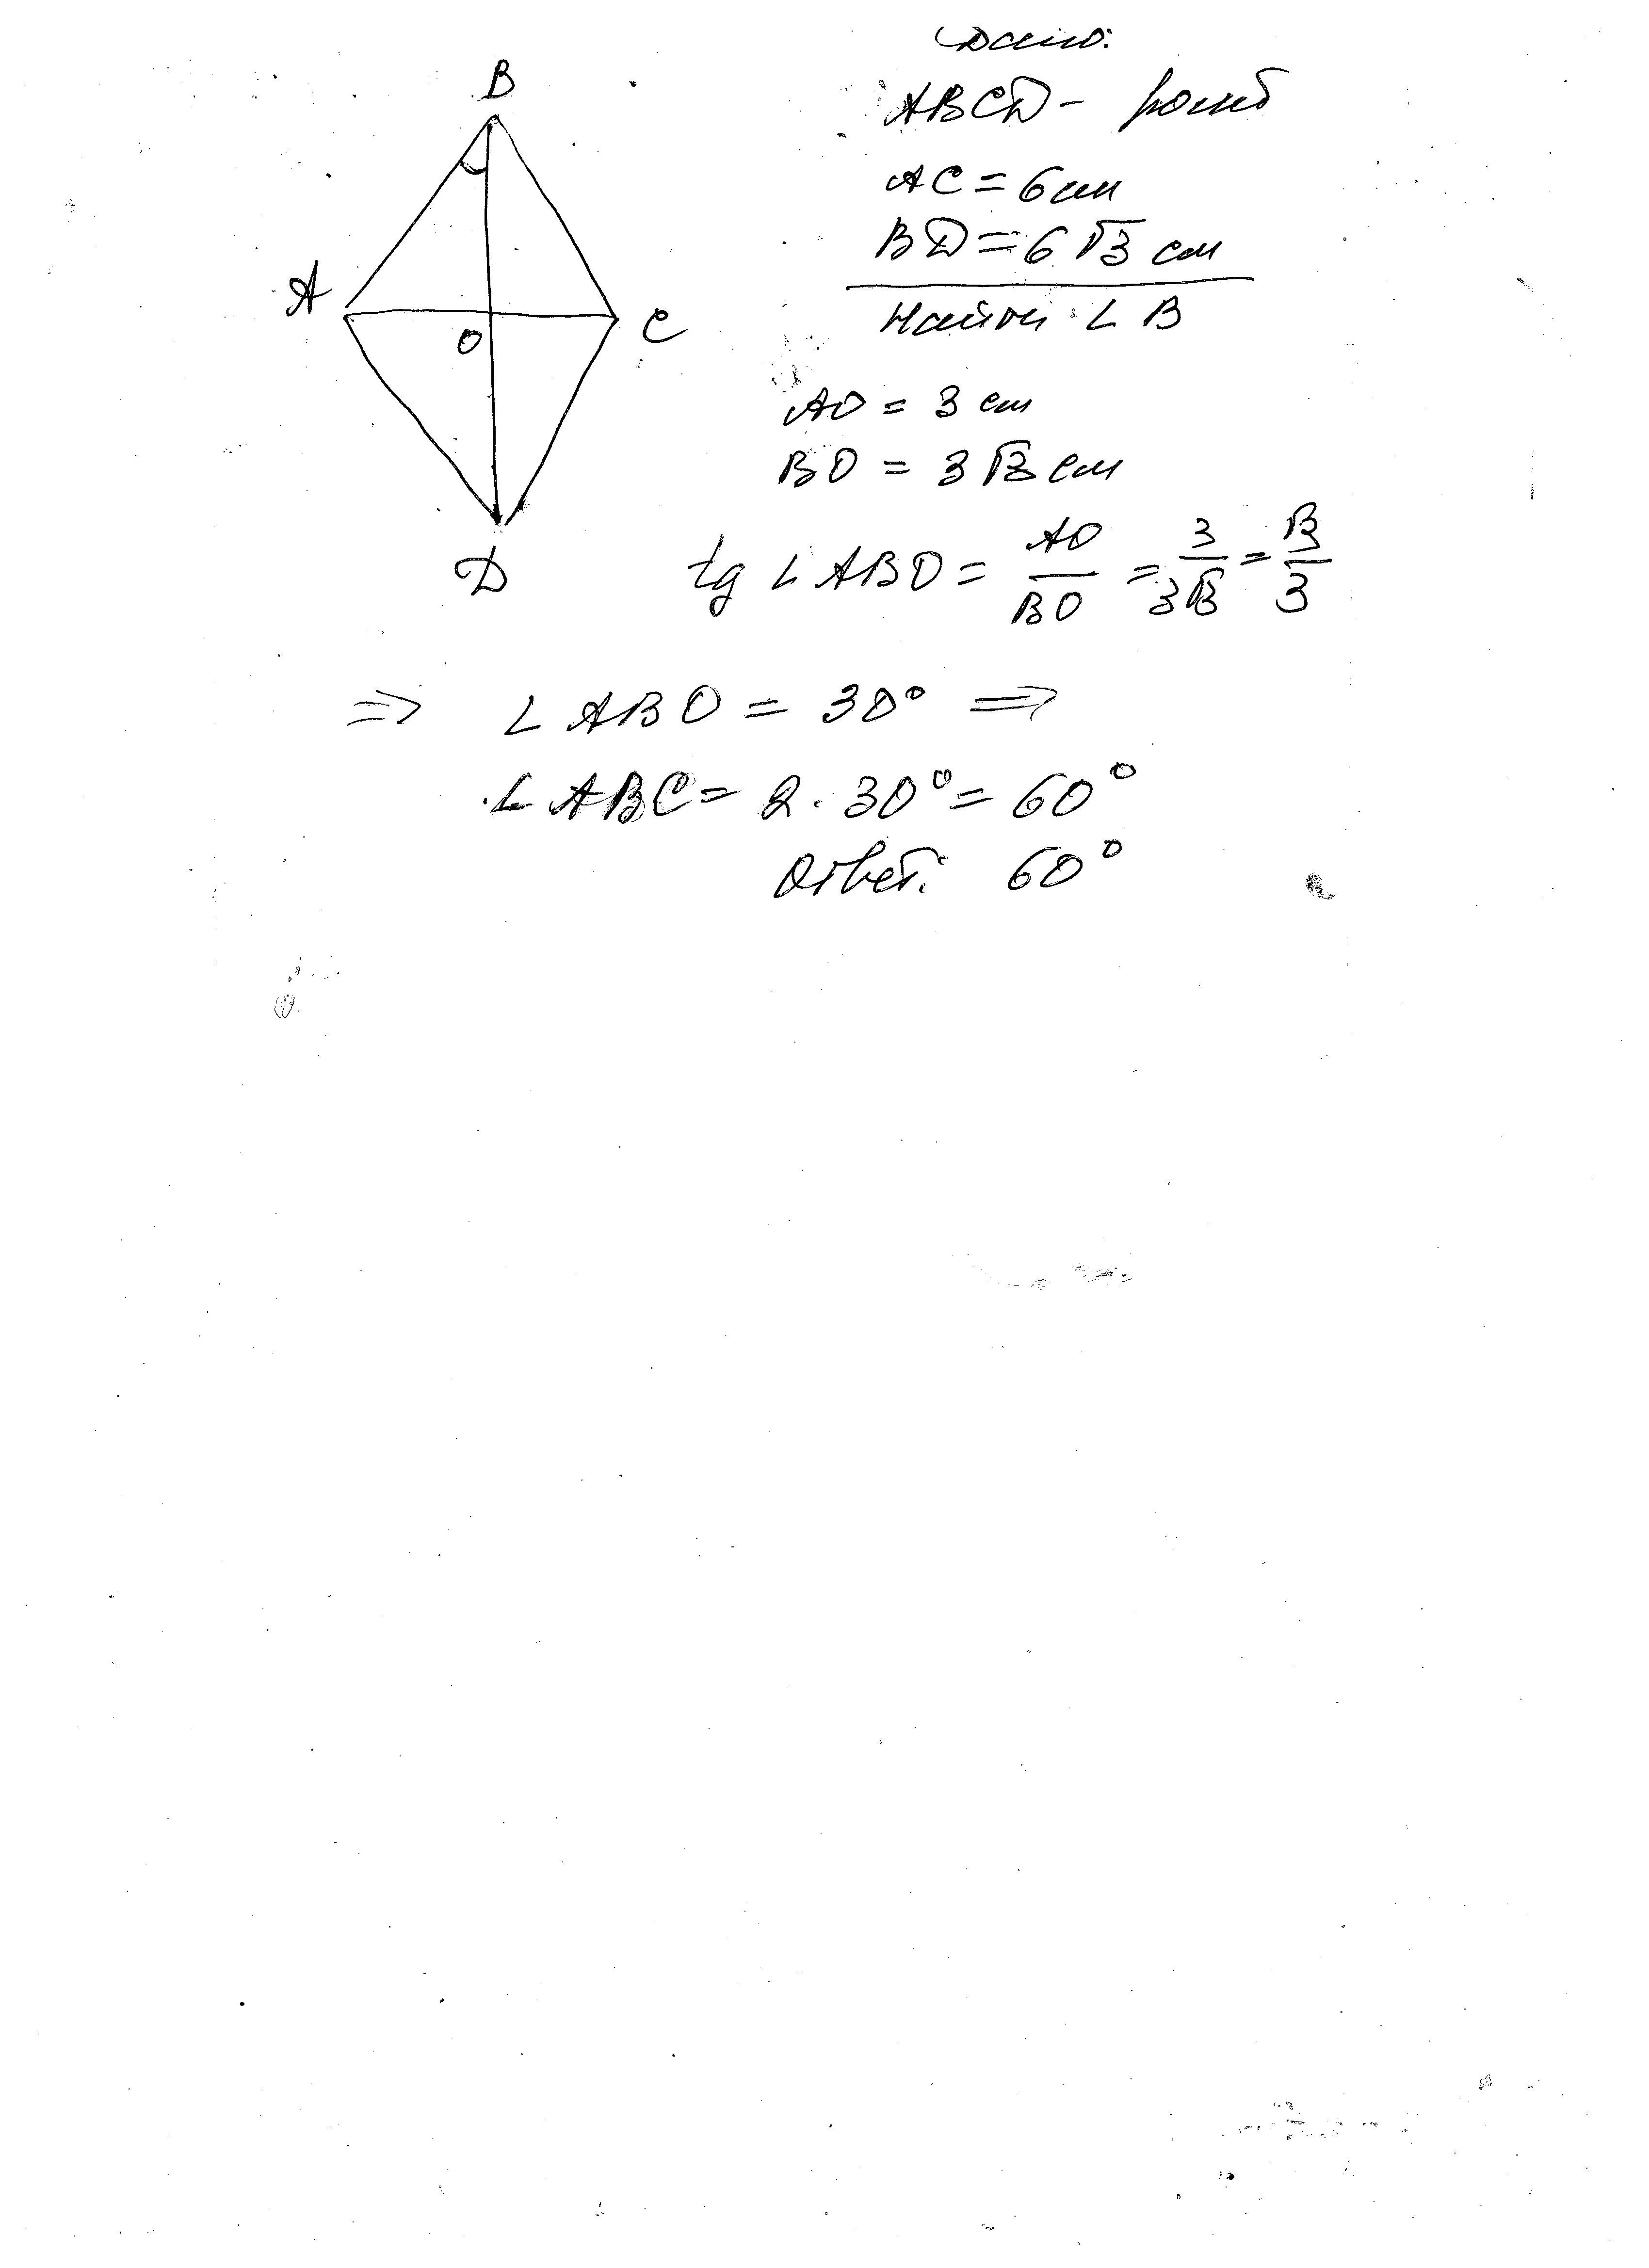 Дано:
B
ABCD - ромб
AC = 6 см
BD = 6 √3 см
A
O
C
Найти: ∠ B
AO = 3 см
BO = 3 √3 см
D
tg ∠ ABO = AO / BO = 3 / 3√3 = √3 / 3
⇒ ∠ ABO = 30° ⇒
∠ ABC = 2 · 30° = 60°
Ответ: 60°